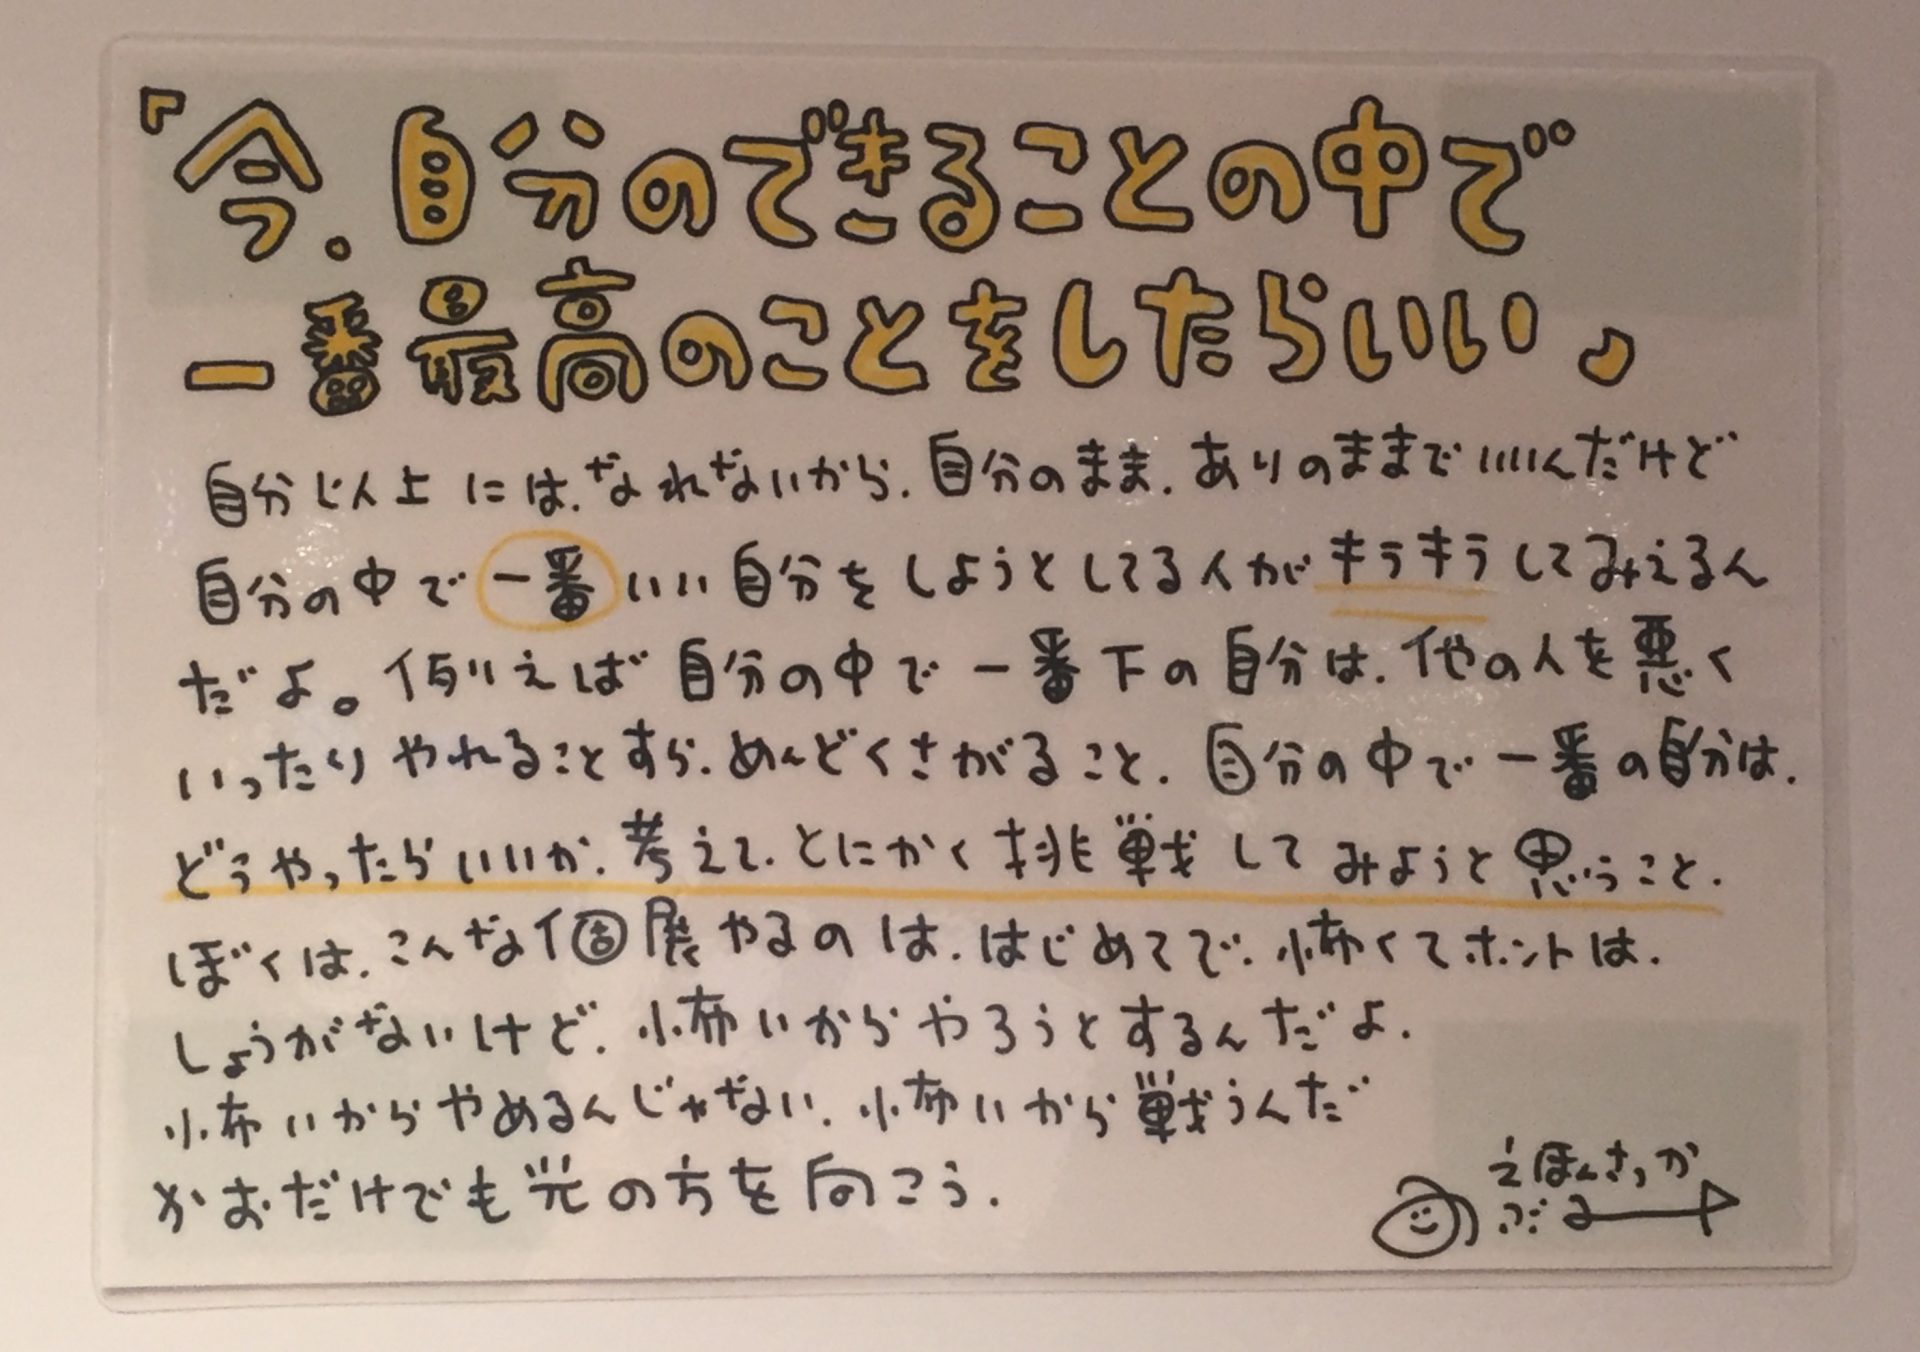 「今.自分のできることの中で
一番最高のことをしたらいい」
自分以上には.なれないから.自分のまま.ありのままでいいんだけど
自分の中で一番いい自分をしようとしてる人がキラキラしてみえるん
だよ。例えば自分の中で一番下の自分は.他の人を悪く
いったりやれることすら.めんどくさがること.自分の中で一番の自分は.
どうやったらいいか.考えて.とにかく挑戦してみようと思うこと.
ぼくは.こんな個展やるのは.はじめてで.怖くてホントは.
しょうがないけど.怖いからやろうとするんだよ.
怖いからやめるんじゃない.怖いから戦うんだ
かおだけでも光の方を向こう.
えほんさっか